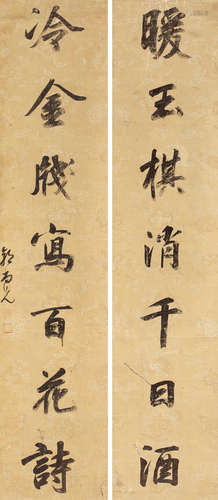 暖玉棋消千日酒
冷金牋寫百花詩